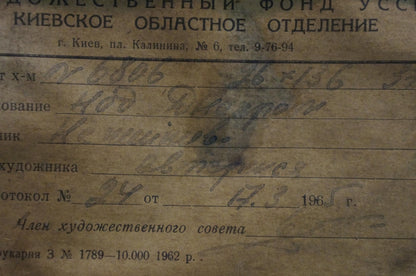 ДОЖЕСТВЕННЫЙ ФОНД УССР
КИЕВСКОЕ ОБЛАСТНОЕ ОТДЕЛЕНИЕ
г. Киев, пл. Калинина, № 6, тел. 9-76-94
т х-м 6806
ование Над Днепром
ник
художника авторская
отокол № 24 от 17.3 1965 г.
Член художественного совета
рукарня З № 1789—10.000 1962 р.